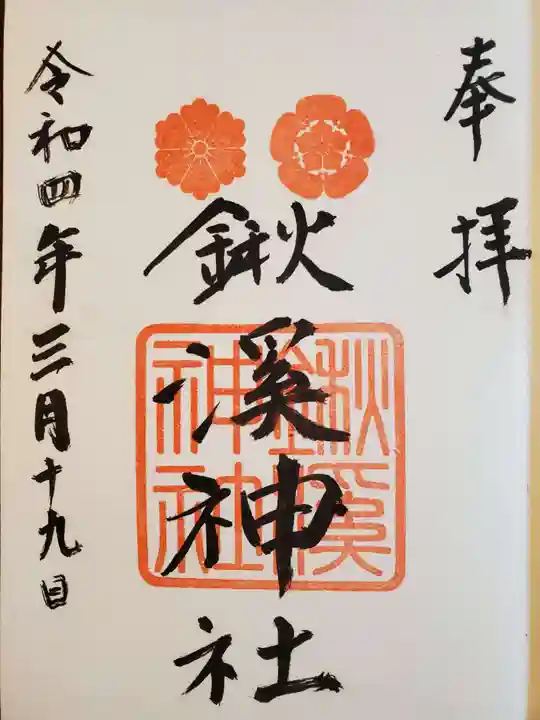 奉拝
鍬渓神社
鍬渓神社
令和四年三月十九日